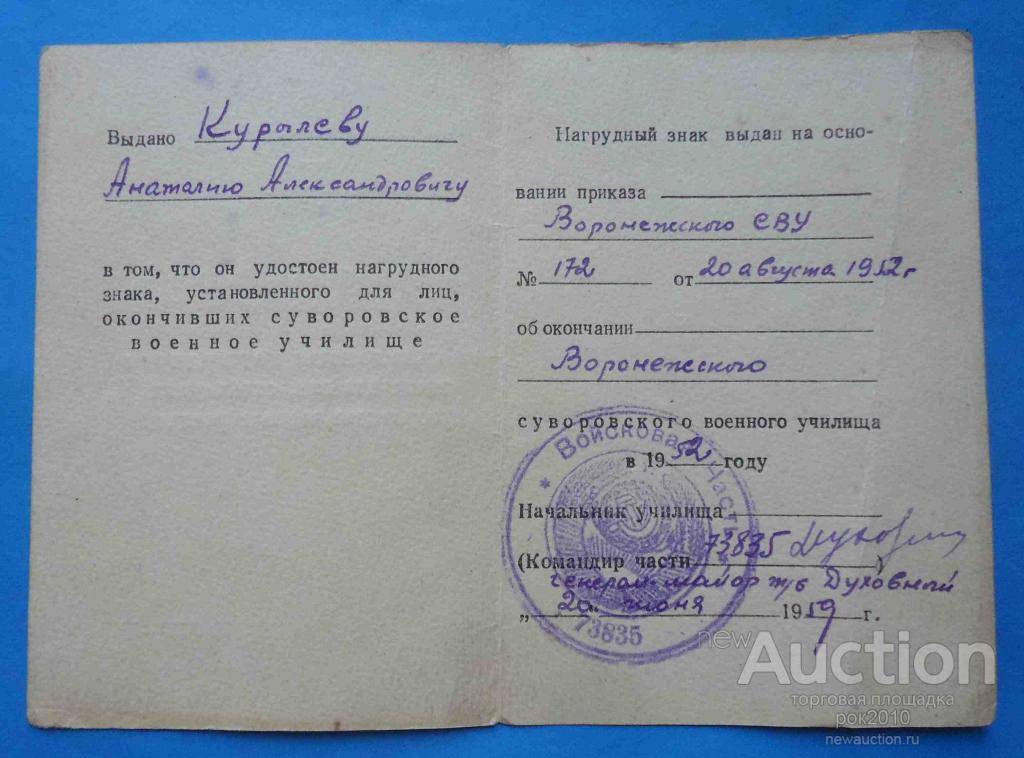 Выдано Курылеву
Анатолию Александровичу
в том, что он удостоен нагрудного
знака, установленного для лиц,
окончивших суворовское
военное училище
Нагрудный знак выдан на осно-
вании приказа
Воронежского СВУ
№ 172 от 20 августа 1952 г
об окончании
Воронежского
суворовского военного училища
в 1952 году
Начальник училища
(Командир части 73835 Духовный)
генерал-майор т/в Духовный
„20" июня 1959 г.
* Войсковая Часть *
73835
newAuction
торговая площадка
рок2010
newauction.ru